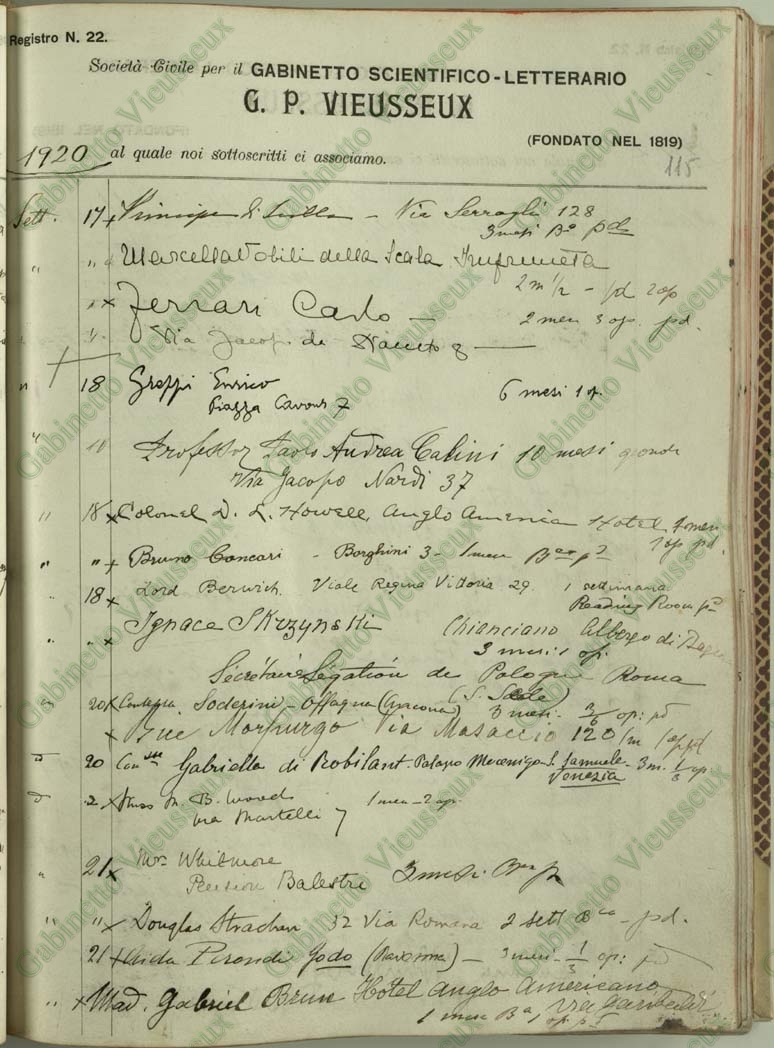 Registro N. 22.
Società Civile per il GABINETTO SCIENTIFICO-LETTERARIO
G. P. VIEUSSEUX
(FONDATO NEL 1819)
115
1920 al quale noi sottoscritti ci associamo.
Sett. 17 x Principe di - Via Serragli 128
3 mesi Bº pdo
" " Marcella Nobili della Scala Impruneta
2 m 1/2 - pd 2 op
" x Ferrari Carlo —
2 mesi 3 op. pd.
" Via Jacopo da 8 —
" 18 Greppi Enrico 6 mesi 1 op.
Piazza Cavour 7
" Professor Paolo Andrea Calini 10 mesi
Via Jacopo Nardi 37
" 18 x Colonel D. L. Howell, Anglo America Hotel
1 op pd.
" " x Bruno Concari - Borghini 3 - 1 mese
" 18 x Lord Berwick. Viale Regina Vittoria 29. 1 settimana
Reading Room
" " x Ignace Skrzynski Chianciano Albergo di
3 mesi 1 op.
Sécrétaire Légation de Pologne Roma
20 x Contessa Soderini - Offagna (Ancona) 3 mesi - op: pd
x Morpurgo Via Masaccio 120
20 Gabriella di Robilant. Palazzo Mocenigo S. Samuele 3 m. op.
Venezia
x Miss M. B. Woods 1 mese - 2 op.
via Martelli 7
21 x Mrs. Whitmore
Pension Balestri 3 mesi
" " x Douglas Strachan 32 Via Romana 2 sett - pd.
21 x Aida Pirondi Godo (Ravenna) - 3 mesi - 1/3 op:
" x Mad. Gabriel Brun Hôtel Anglo Americano
1 mese Bª 1 op via Garibaldi